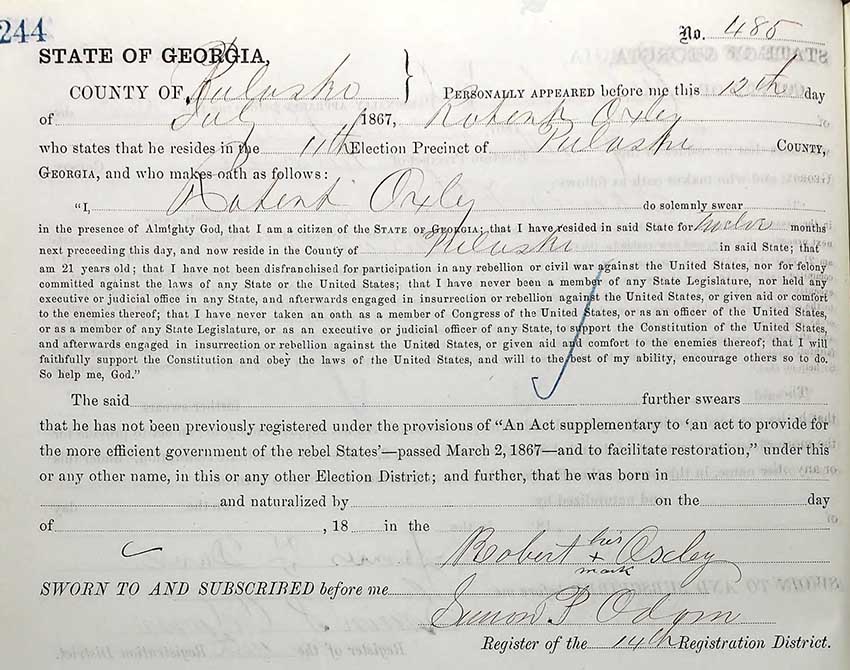 244
No. 485
STATE OF GEORGIA,
COUNTY OF Pulaski } PERSONALLY APPEARED before me this 12th day
of July 1867, Robert Oxley
who states that he resides in the 11th Election Precinct of Pulaski COUNTY,
GEORGIA, and who makes oath as follows:
"I, Robert Oxley do solemnly swear
in the presence of Almighty God, that I am a citizen of the STATE OF GEORGIA; that I have resided in said State for twelve months
next preceeding this day, and now reside in the County of Pulaski in said State; that
am 21 years old; that I have not been disfranchised for participation in any rebellion or civil war against the United States, nor for felony
committed against the laws of any State or the United States; that I have never been a member of any State Legislature, nor held any
executive or judicial office in any State, and afterwards engaged in insurrection or rebellion against the United States, or given aid or comfort
to the enemies thereof; that I have never taken an oath as a member of Congress of the United States, or as an officer of the United States,
or as a member of any State Legislature, or as an executive or judicial officer of any State, to support the Constitution of the United States,
and afterwards engaged in insurrection or rebellion against the United States, or given aid and comfort to the enemies thereof; that I will
faithfully support the Constitution and obey the laws of the United States, and will to the best of my ability, encourage others so to do.
So help me, God."
The said further swears
that he has not been previously registered under the provisions of "An Act supplementary to 'an act to provide for
the more efficient government of the rebel States'—passed March 2, 1867—and to facilitate restoration," under this
or any other name, in this or any other Election District; and further, that he was born in
and naturalized by on the day
of , 18 in the
Robert his + mark Oxley
SWORN TO AND SUBSCRIBED before me
Simon P Odom
Register of the 14th Registration District.